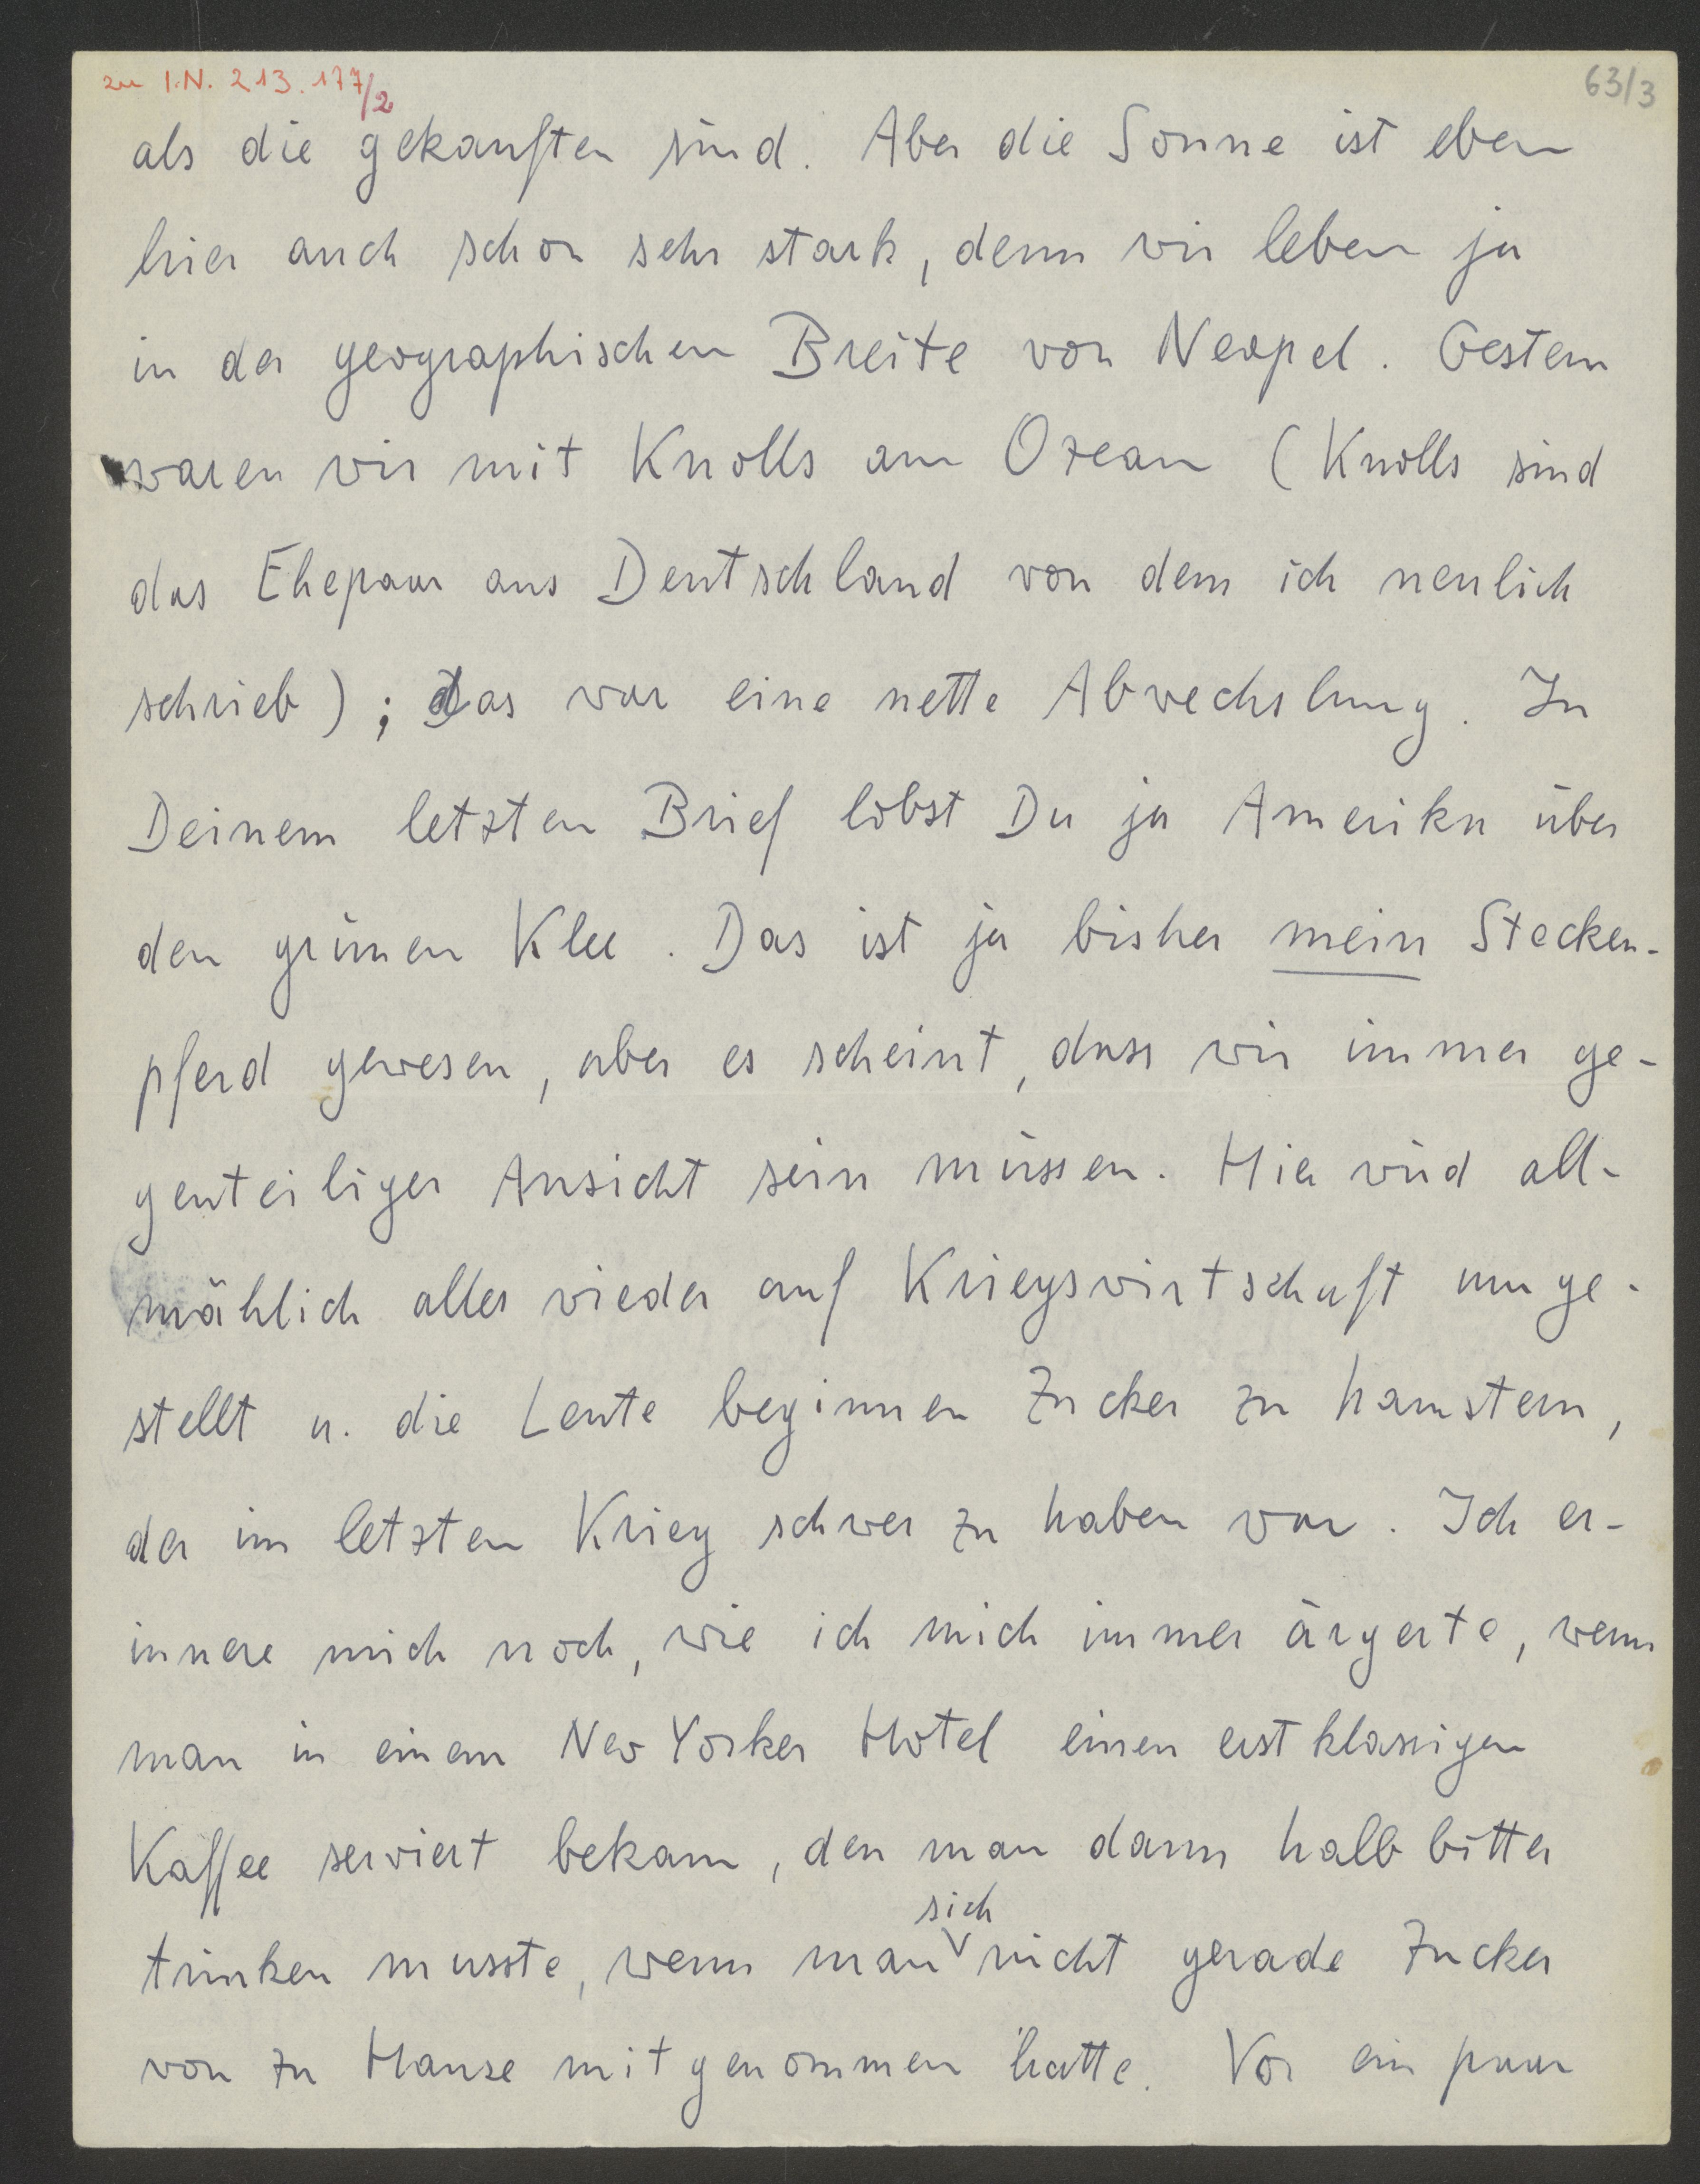 zu I.N. 213.177/2
63/3
als die gekauften sind. Aber die Sonne ist eben
hier auch schon sehr stark, denn wir leben ja
in der geographischen Breite von Neapel. Gestern
waren wir mit Knolls am Ozean (Knolls sind
das Ehepaar aus Deutschland von dem ich neulich
schrieb); das war eine nette Abwechslung. In
Deinem letzten Brief lobst Du ja Amerika über
den grünen Klee. Das ist ja bisher mein Stecken-
pferd gewesen, aber es scheint, dass wir immer ge-
genteiliger Ansicht sein müssen. Hier wird all-
mählich alles wieder auf Kriegswirtschaft umge-
stellt u. die Leute beginnen Zucker zu hamstern,
der im letzten Krieg schwer zu haben war. Ich er-
innere mich noch, wie ich mich immer ärgerte, wenn
man in einem New Yorker Hotel einen erstklassigen
Kaffee serviert bekam, den man dann halb bitter
trinken musste, wenn man sich nicht gerade Zucker
von zu Hause mitgenommen hatte. Vor ein paar